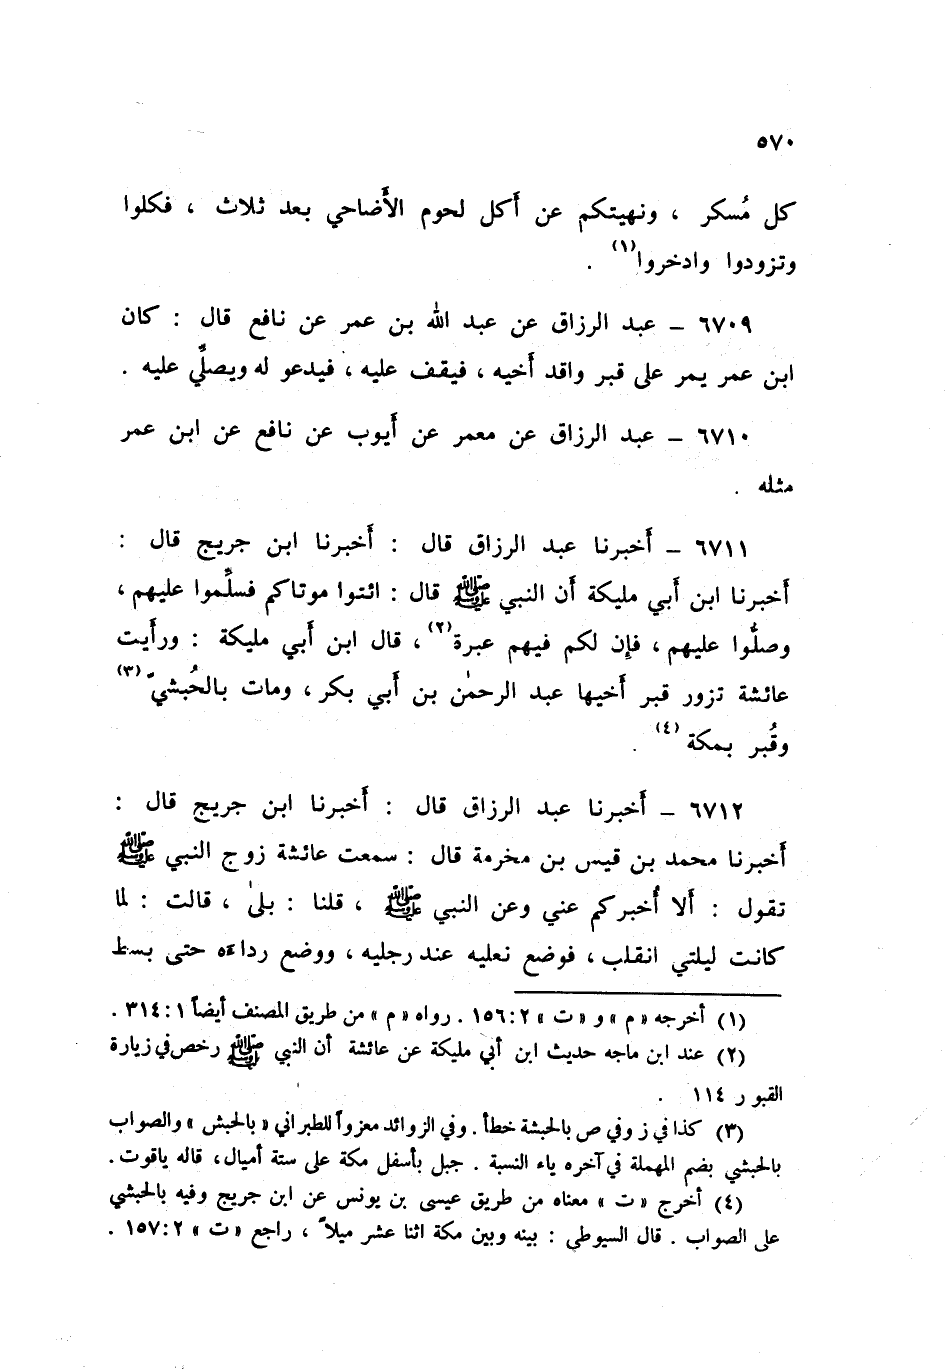 ٥٧٠
كل مُسكر ، ونهيتكم عن أَكل لحوم الأَضاحي بعد ثلاث ، فكلوا
وتزودوا وادخروا(١) .
٦٧٠٩ – عبد الرزاق عن عبد الله بن عمر عن نافع قال : كان
ابن عمر يمر على قبر واقد أَخيه ، فيقف عليه ، فيدعو له ويصلِّي عليه .
٦٧١٠ – عبد الرزاق عن معمر عن أَيوب عن نافع عن ابن عمر
مثله .
٦٧١١ – أَخبرنا عبد الرزاق قال : أَخبرنا ابن جريج قال :
أَخبرنا ابن أَبي مليكة أَن النبي ﷺ قال : ائتوا موتاكم فسلِّموا عليهم ،
وصلُّوا عليهم ، فإِن لكم فيهم عبرة(٢) ، قال ابن أَبي مليكة : ورأَيت
عائشة تزور قبر أَخيها عبد الرحمٰن بن أَبي بكر ، ومات بالحُبشيّ(٣)
وقُبر بمكة(٤) .
٦٧١٢ – أَخبرنا عبد الرزاق قال : أَخبرنا ابن جريج قال :
أَخبرنا محمد بن قيس بن مخرمة قال : سمعت عائشة زوج النبي ﷺ
تقول : أَلا أُخبركم عني وعن النبي ﷺ ، قلنا : بلىٰ ، قالت : لما
كانت ليلتي انقلب ، فوضع نعليه عند رجليه ، ووضع رداءه حتى بسط
(١) أخرجه «م» و «ت» ١٥٦:٢ . رواه «م» من طريق المصنف أيضاً ٣١٤:١ .
(٢) عند ابن ماجه حديث ابن أبي مليكة عن عائشة أن النبي ﷺ رخص في زيارة
القبور ١١٤ .
(٣) كذا في ز وفي ص بالحبشة خطأ . وفي الزوائد معزواً للطبراني «بالحبش» والصواب
بالحبشي بضم المهملة في آخره ياء النسبة . جبل بأسفل مكة على ستة أميال ، قاله ياقوت .
(٤) أخرج «ت» معناه من طريق عيسى بن يونس عن ابن جريج وفيه بالحبشي
على الصواب . قال السيوطي : بينه وبين مكة اثنا عشر ميلاً ، راجع «ت» ١٥٧:٢ .